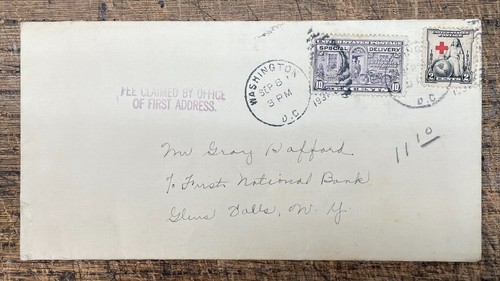 UNITED STATES POSTAGE
SPECIAL DELIVERY
10 CENTS 10
2 2
WASHINGTON
SEP 8
3 PM
1931
D.C.
D.C.
FEE CLAIMED BY OFFICE
OF FIRST ADDRESS.
1110
Mr Gray
% First National Bank
Glens Falls, N. Y.